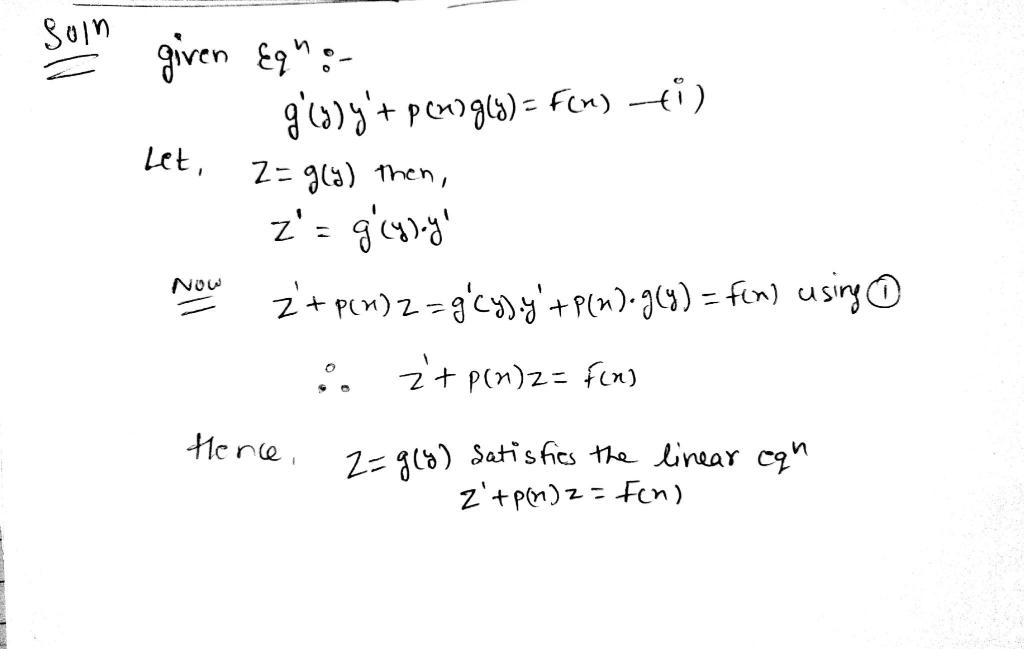 Soln
given Eqⁿ :-
g'(y)y' + p(x)g(y) = f(x) —(i)
Let, Z = g(y) then,
z' = g'(y).y'
Now z' + p(x) z = g'(y).y' + p(x).g(y) = f(x) using ①
∴ z' + p(x)z = f(x)
Hence, Z = g(y) satisfies the linear eqⁿ
z' + p(x) z = f(x)